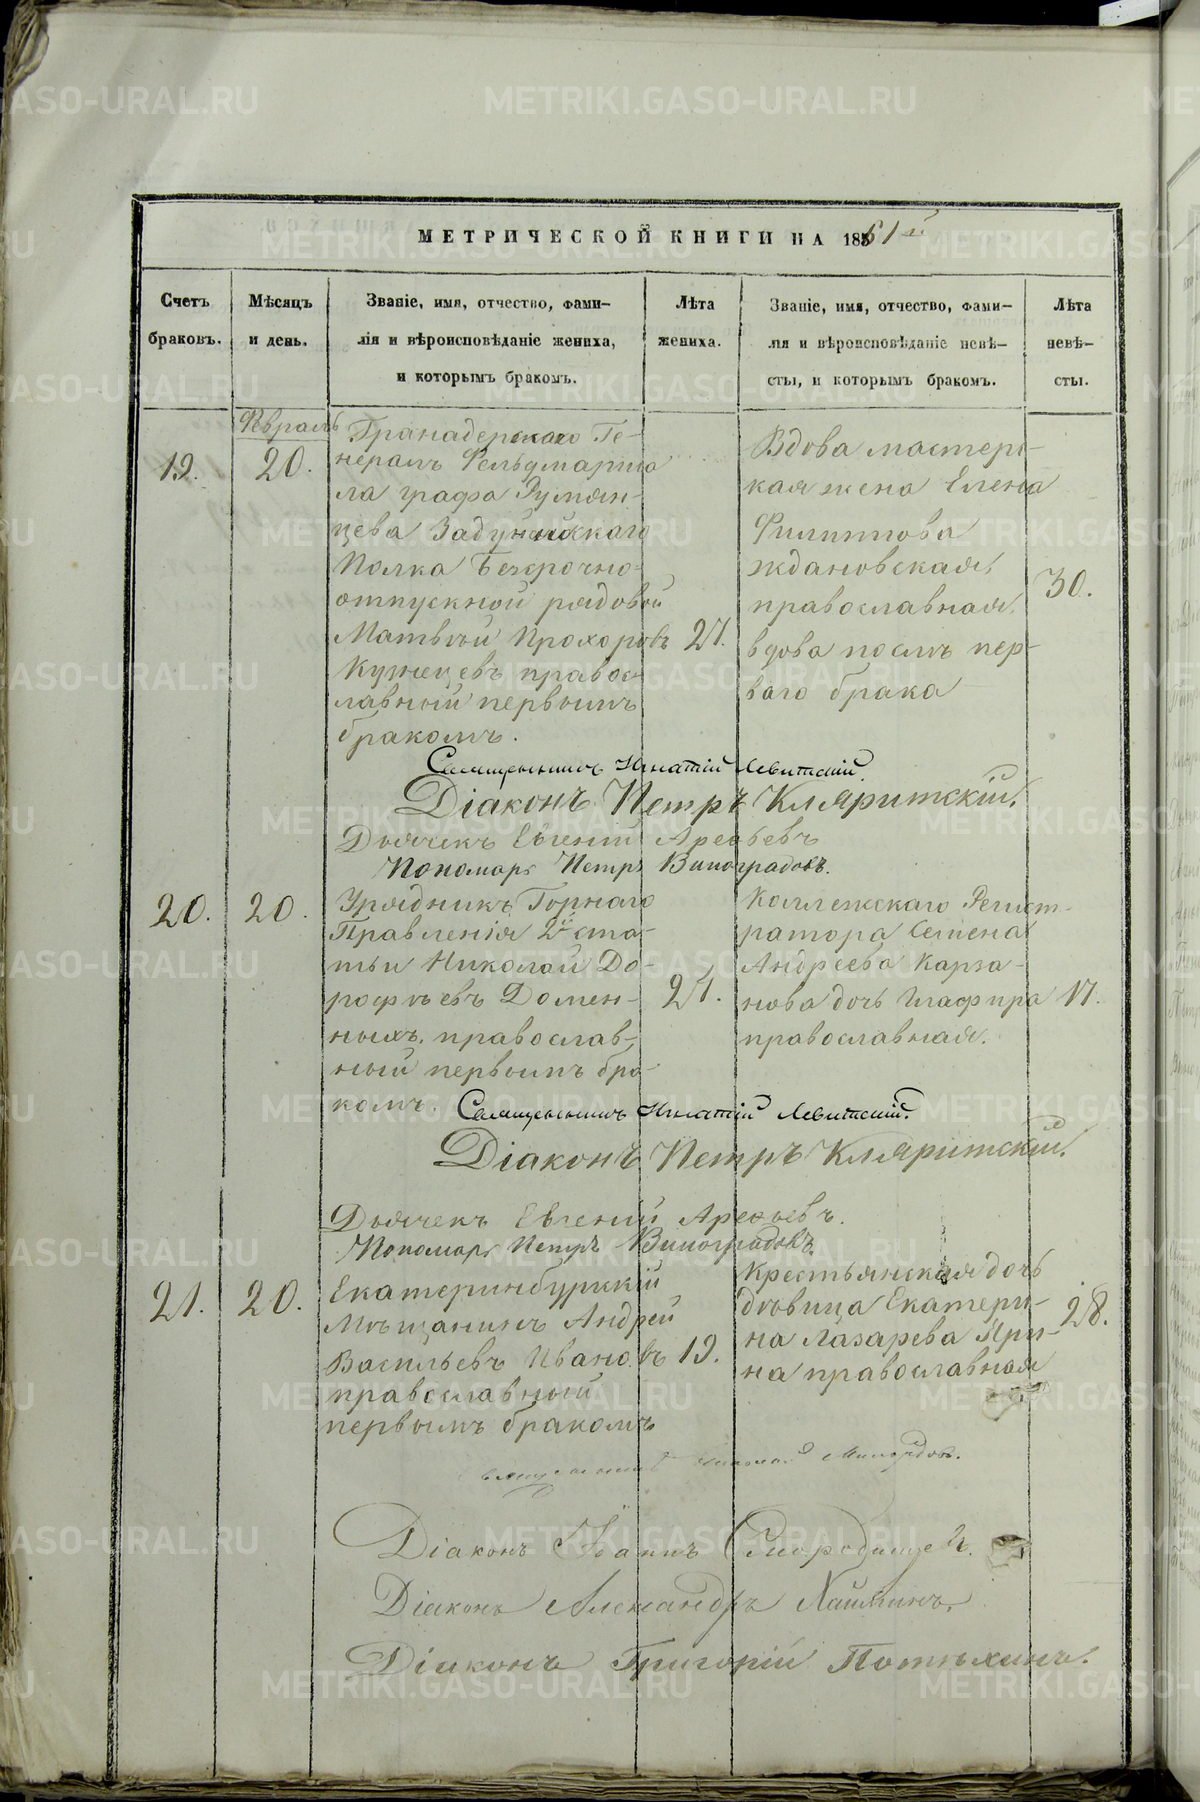 МЕТРИЧЕСКОЙ КНИГИ НА 1861й
Счетъ браковъ.
Мѣсяцъ и день.
Званіе, имя, отчество, фами-
лія и вѣроисповѣданіе жениха,
и которымъ бракомъ.
Лѣта жениха.
Званіе, имя, отчество, фами-
лія и вѣроисповѣданіе невѣ-
сты, и которымъ бракомъ.
Лѣта невѣ-
сты.
Февраль
19.
20.
Гранадерскаго Ге-
нералъ Фельдмарша
ла графа Румян-
цева Задунайскаго
Полка Безсрочно-
отпускной рядовой
Матвѣй Прохоровъ
Кузнецевъ правос-
лавный первымъ
бракомъ.
27.
Вдова мастерс-
кая жена Елена
Филиппова
Ждановская,
православная,
вдова послѣ пер-
ваго брака
30.
Священникъ Игнатій Левитскій.
Діаконъ Петръ Кляритскій.
Дьячекъ Евгеній Арефьевъ
Пономарь Петръ Виноградовъ.
20.
20.
Урядникъ Горнаго
Правленія 2й ста-
тьи Николай До-
рофѣевъ Домен-
ныхъ, православ-
ный первымъ бра-
комъ.
27.
Коллежскаго Регист-
ратора Семена
Андреева Карза-
нова дочь Глафира
православная.
17.
Священникъ Игнатій Левитскій.
Діаконъ Петръ Кляритскій.
Дьячекъ Евгеній Арефьевъ.
Пономарь Петръ Виноградовъ.
21.
20.
Екатеринбургскій
Мѣщанинъ Андрей
Васильевъ Ивановъ
православный
первымъ бракомъ
19.
Крестьянская дочь
дѣвица Екатери-
на Лазарева
на православная
28.
Священникъ Николай
Діаконъ Іоаннъ Смородинцевъ.
Діаконъ Александръ
Діаконъ Григорій Потѣхинъ.
METRIKI.GASO-URAL.RU